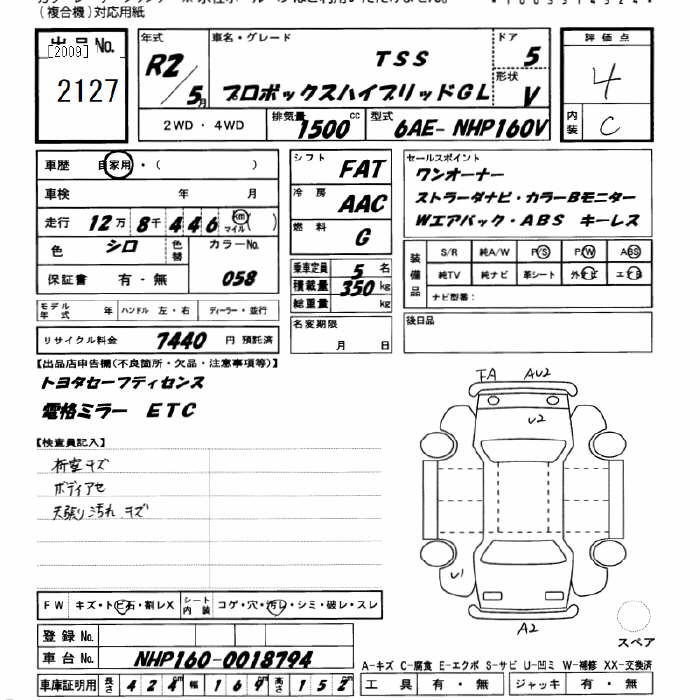 (複合機)対応用紙
出品No.
[2009]
2127
年式
R2/5月
車名・グレード
TSS
プロボックスハイブリッドGL
ドア
5
形状
V
評価点
4
内装
C
2WD・4WD
排気量
1500cc
型式
6AE-NHP160V
車歴 自家用・( )
車検 年 月
走行 12万 8千 446 km マイル( )
色 シロ 色替 カラーNo.
保証書 有・無 058
モデル年式 年 ハンドル 左・右 ディーラー・並行
リサイクル料金 7440 円 預託済
シフト FAT
冷房 AAC
燃料 G
乗車定員 5 名
積載量 350 kg
総重量 kg
名変期限
月 日
セールスポイント
ワンオーナー
ストラーダナビ・カラーBモニター
Wエアバック・ABS キーレス
装備品
S/R 純A/W P/S P/W ABS
純TV 純ナビ 革シート 外ナビ エアB
ナビ型番:
後日品
【出品店申告欄(不良箇所・欠品・注意事項等)】
トヨタセーフティセンス
電格ミラー ETC
【検査員記入】
桁室キズ
ボディアセ
天張り汚れ キズ
FW キズ・トビ石・割レX シート内装 コゲ・穴・汚レ・シミ・破レ・スレ
登録No.
車台No. NHP160-0018794
車庫証明用 長さ 424cm 幅 169cm 高さ 152cm
FA AU2
U2
U1
A2
スペア
A-キズ C-腐食 E-エクボ S-サビ U-凹ミ W-補修 XX-交換済
工具 有・無 ジャッキ 有・無